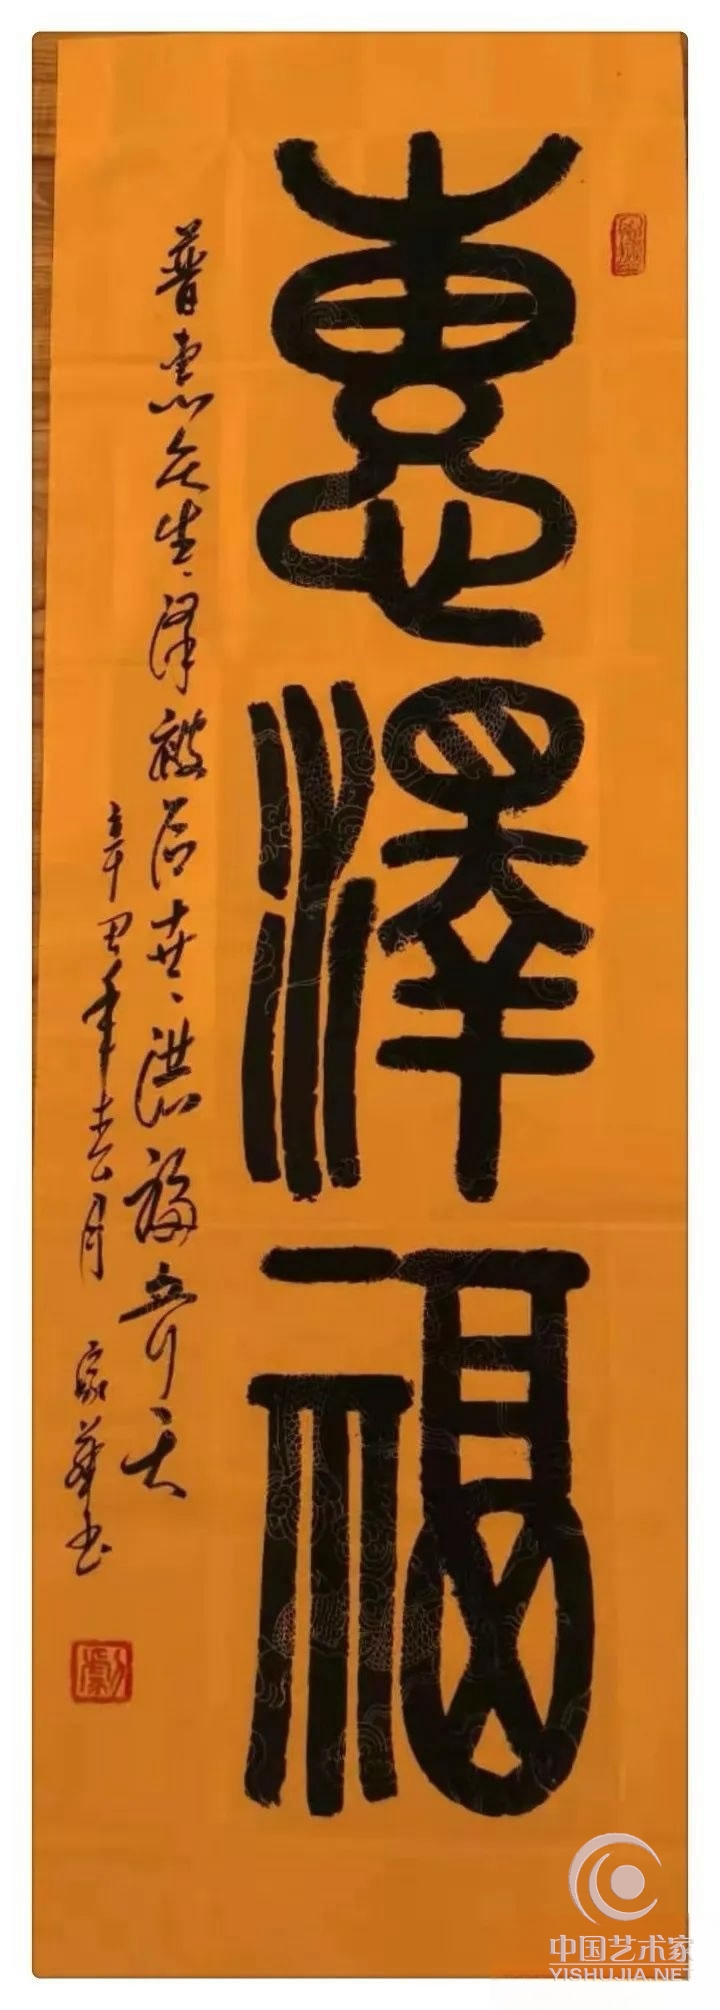 惠澤福
普惠众生、泽被后世、洪福齐天
辛丑年 月 家華书
中国艺术家
YISHUJIA.NET